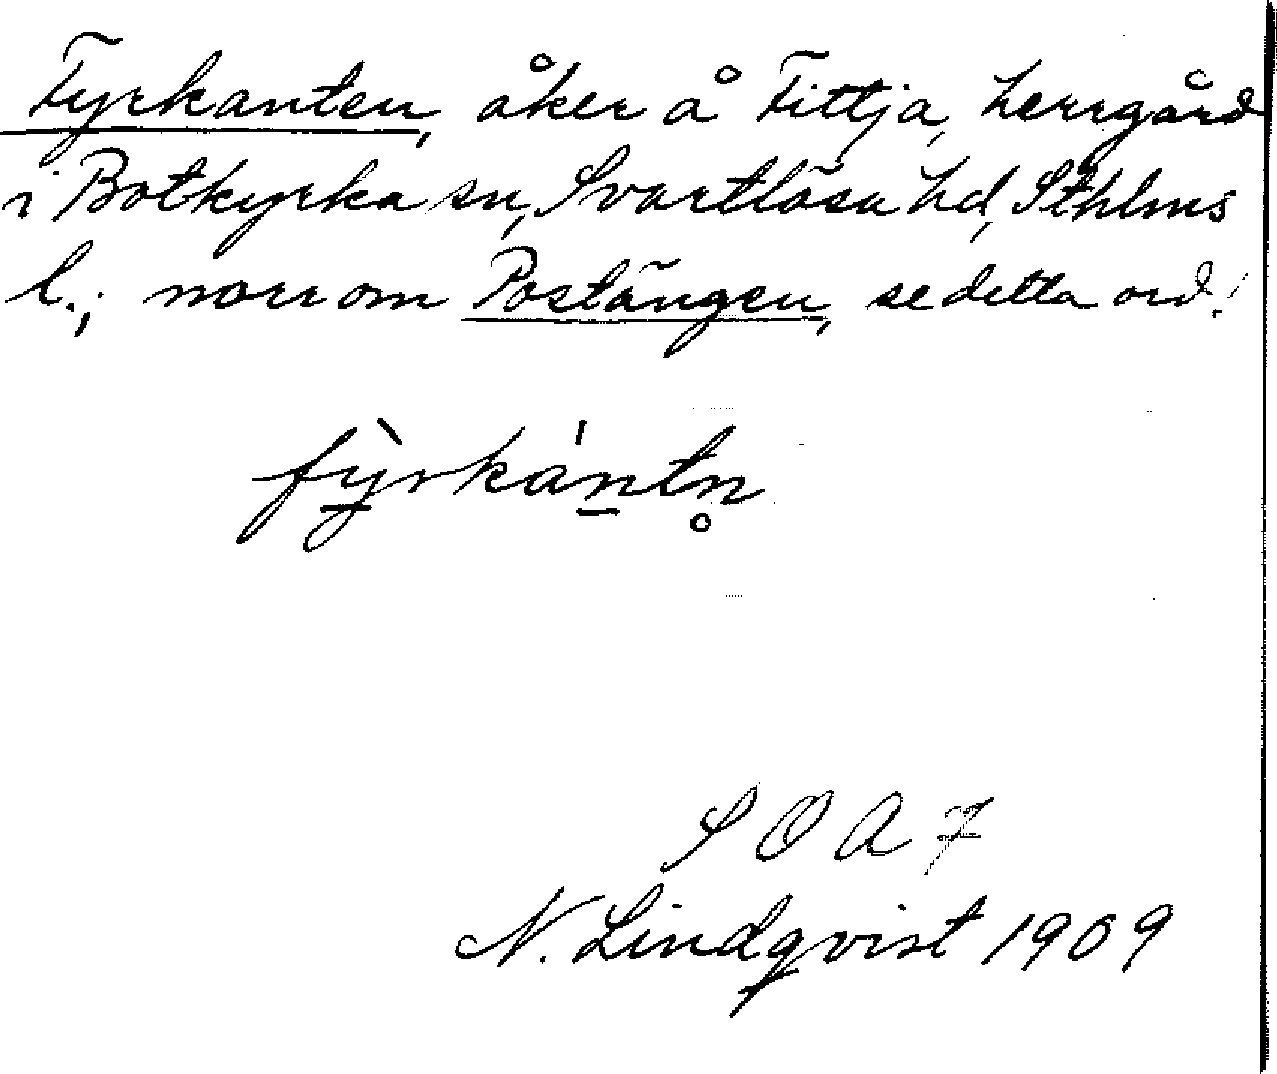 Fyrkanten, åker å Fittja, herrgård
i Botkyrka sn, Svartlösa hd, Sthlms
l.; norr om Postängen, se detta ord!
fỳ̠rkán̠tn̥
S O A 7
N. Lindqvist 1909